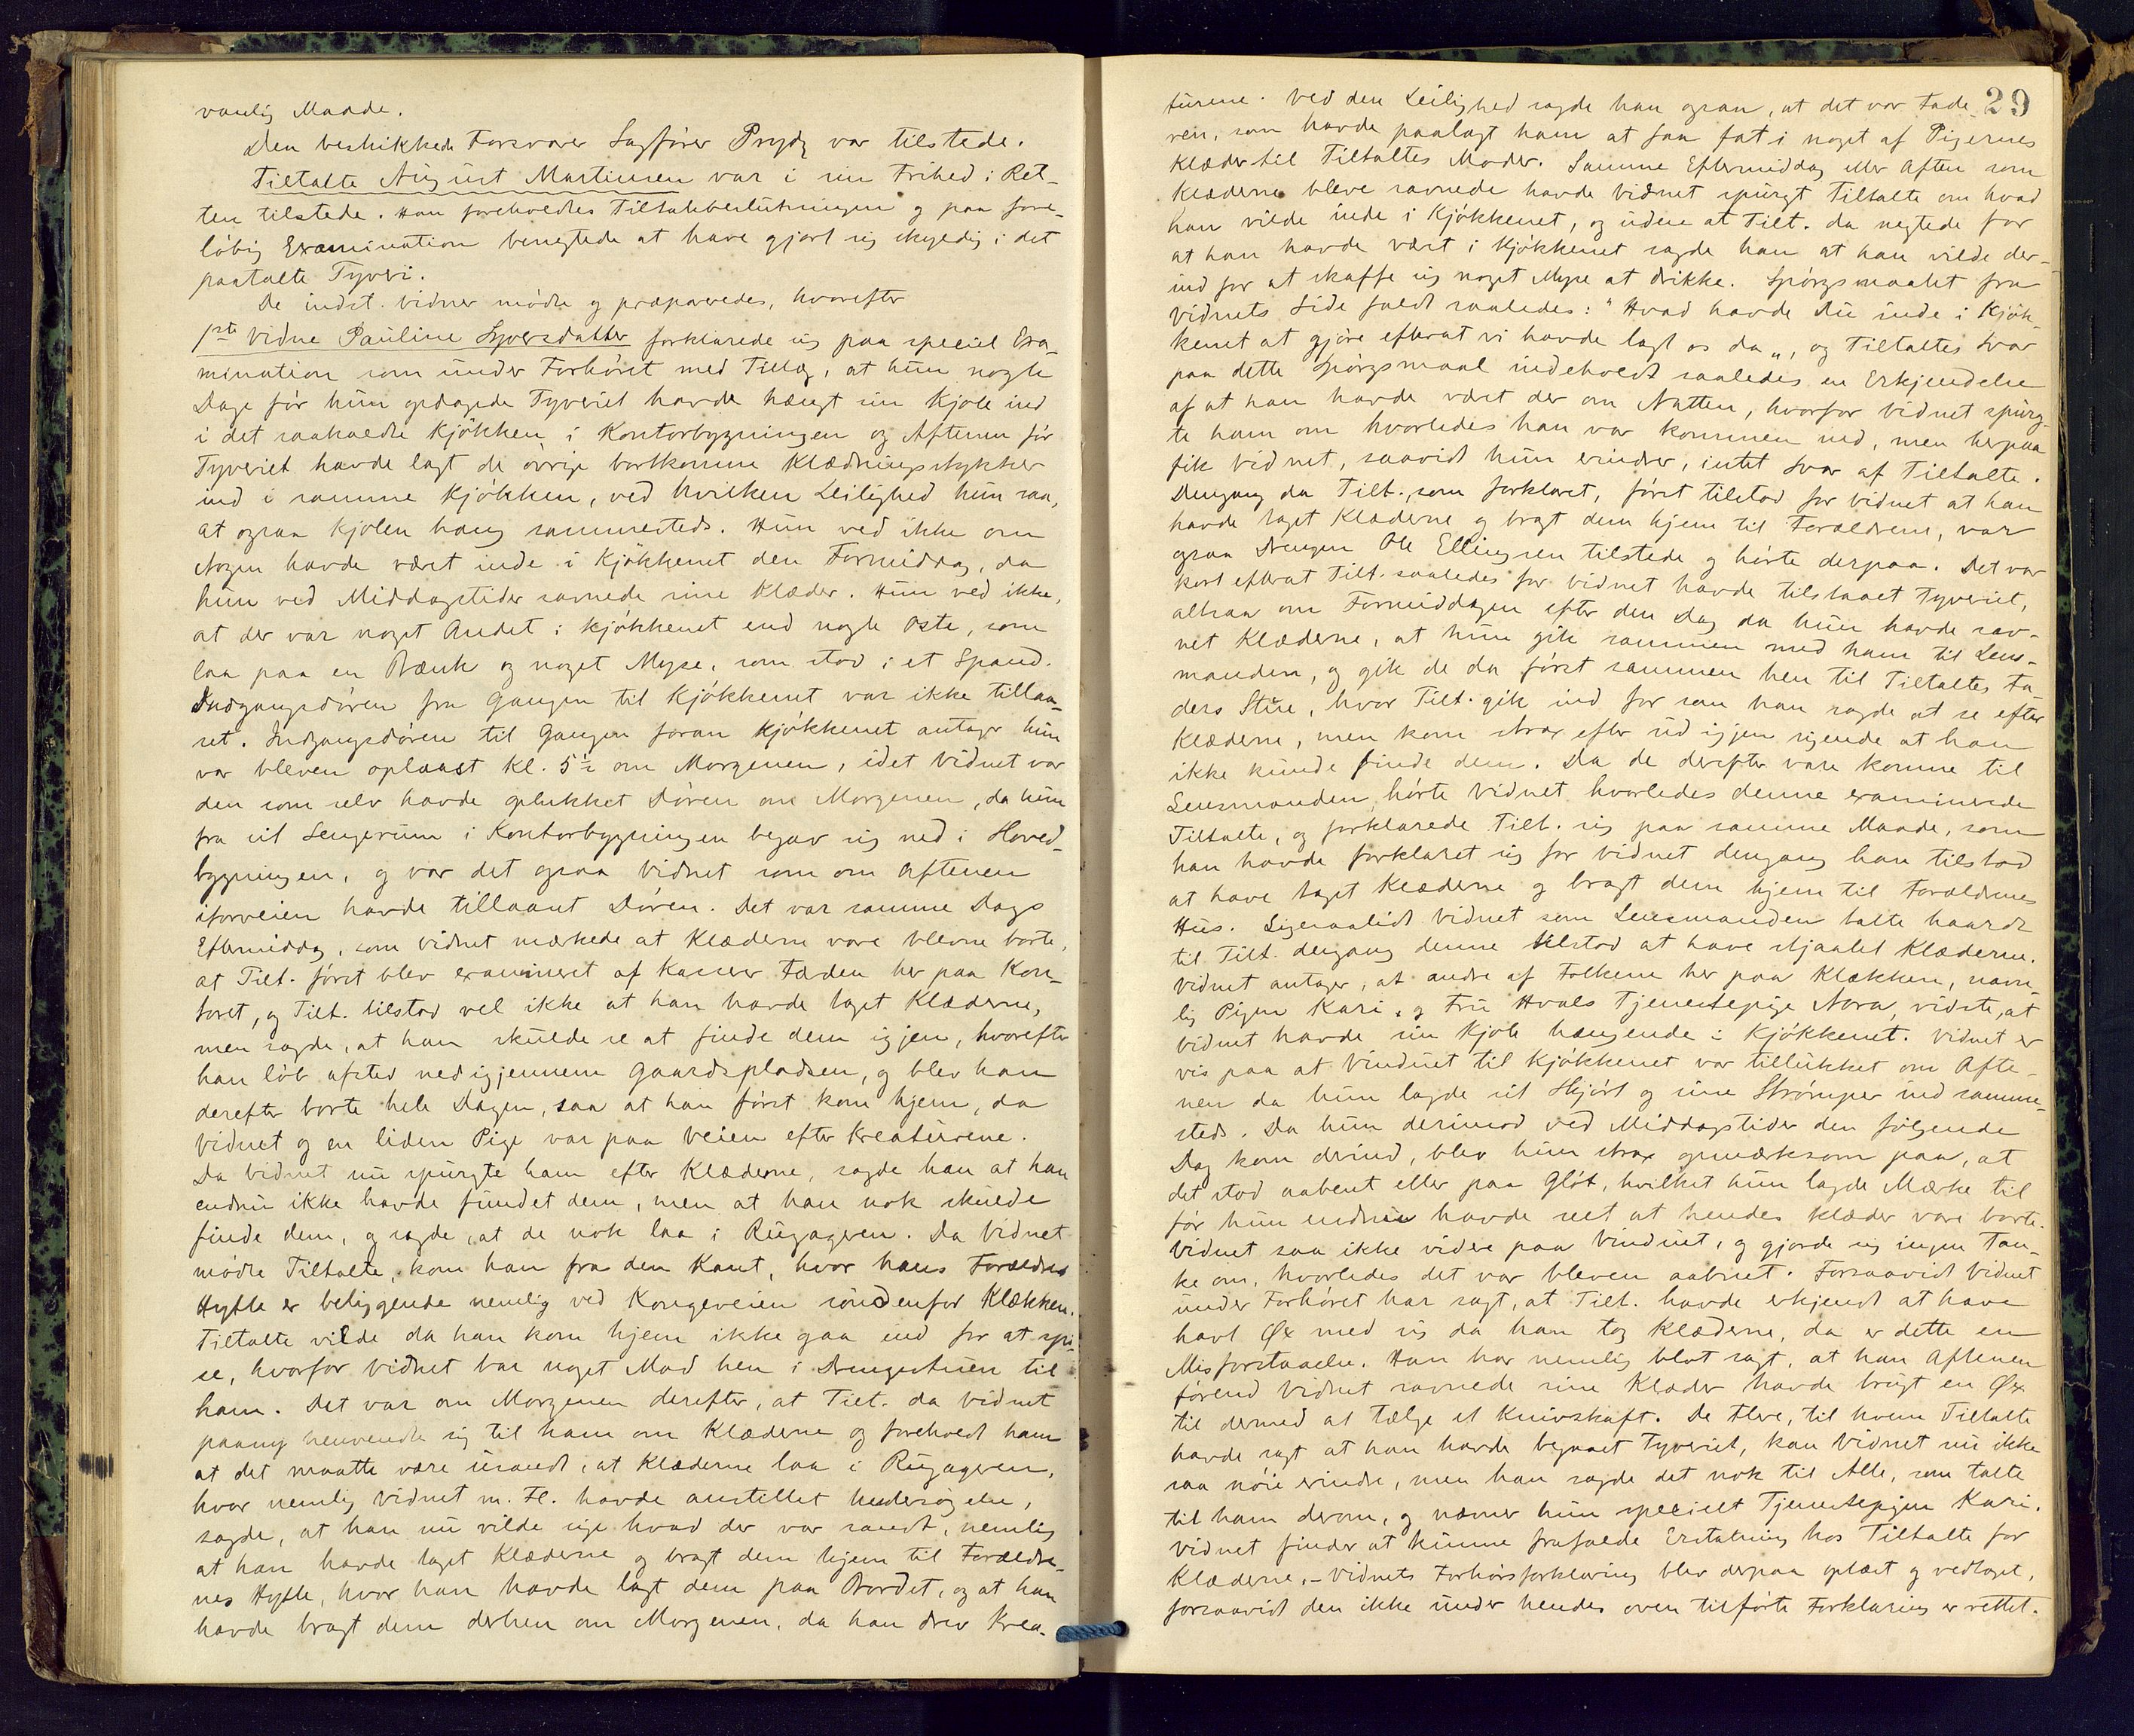 vanlig Maade.
Den beskikkede Forsvarer Sagfører Prydz var tilstede.
Tiltalte August Martinsen var i sin Frihed i Ret-
ten tilstede. Han foreholdtes Tiltalebeslutningen og paa fore-
løbig Examination benegtede at have gjort sig skyldig i det
paatalte Tyveri.
De indst. Vidner mødte og præpareredes, hvorefter
1ste Vidne Pauline Syversdatter forklarede sig paa speciel Exa-
mination som under Forhøret med Tillæg, at hun nogle
Dage før hun opdagede Tyveriet havde hængt sin Kjole ind
i det saakaldte Kjøkken i Kontorbygningen og Aftenen før
Tyveriet havde lagt de øvrige bortkomne Klædningsstykker
ind i samme Kjøkken, ved hvilken Leilighed hun saa,
at ogsaa Kjolen hang sammesteds. Hun ved ikke om
Nogen havde været inde i Kjøkkenet den Formiddag, da
hun ved Middagstider savnede sine Klæder. Hun ved ikke,
at der var noget Andet i Kjøkkenet end nogle Oste, som
laa paa en Bænk og noget Myse, som stod i et Spand.
Indgangsdøren fra Gangen til Kjøkkenet var ikke tillaa-
set. Indgangsdøren til Gangen foran Kjøkkenet antager hun
var bleven oplaast Kl. 5½ om Morgenen, idet Vidnet var
den som selv havde oplukket Døren om Morgenen, da hun
fra sit Sengerum i Kontorbygningen begav sig ned i Hoved-
bygningen, og var det ogsaa Vidnet som om Aftenen
iforveien havde tillaast Døren. Det var samme Dags
Eftermiddag, som Vidnet mærkede at Klæderne vare blevne borte,
at Tilt. først blev examineret af Kasserer Fæden her paa Kon-
toret, og Tilt. tilstod vel ikke at han havde taget Klæderne,
men sagde, at han skulde se at finde dem igjen, hvorefter
han løb afsted ned igjennem Gaardspladsen, og blev han
derefter borte hele Dagen, saa at han først kom hjem, da
Vidnet og en liden Pige var paa Veien efter Kreaturene.
Da Vidnet nu spurgte ham efter Klæderne, sagde han at han
endnu ikke havde fundet dem, men at han nok skulde
finde dem, og sagde, at de nok laa i Rugageren. Da Vidnet
mødte Tiltalte, kom han fra den Kant, hvor hans Forældres
Hytte er beliggende nemlig ved Kongeveien søndenfor Klækken.
Tiltalte vilde da han kom hjem ikke gaa ind for at spi-
se, hvorfor Vidnet bar noget Mad hen i Drengestuen til
ham. Det var om Morgenen derefter, at Tilt. da Vidnet
paany henvendte sig til ham om Klæderne og foreholdt ham
at det maatte være usandt, at Klæderne laa i Rugageren,
hvor nemlig Vidnet m. Fl. havde anstillet Undersøgelse,
sagde, at han nu vilde sige hvad der var sandt, nemlig
at han havde taget Klæderne og bragt dem hjem til Forældre-
nes Hytte, hvor han havde lagt dem paa Bordet, og at han
havde bragt dem derhen om Morgenen, da han drev Krea-
29
turene. Ved den Leilighed sagde han ogsaa, at det var Fade-
ren, som havde paalagt ham at faa fat i noget af Pigernes
Klæder til Tiltaltes Moder. Samme Eftermiddag eller Aften som
Klæderne bleve savnede havde Vidnet spurgt Tiltalte om hvad
han vilde inde i Kjøkkenet, og uden at Tilt. da negtede for
at han havde vært i Kjøkkenet sagde han at han vilde der-
ind for at skaffe sig noget Myse at drikke. Spørgsmaalet fra
Vidnets Side faldt saaledes: "Hvad havde Du inde i Kjøk-
kenet at gjøre efterat vi havde lagt os da", og Tiltaltes Svar
paa dette Spørgsmaal indeholdt saaledes en Erkjendelse
af at han havde vært der om Natten, hvorfor Vidnet spurg-
te ham om hvorledes han var kommen ind, men herpaa
fik Vidnet, saavidt hun erindrer, intet Svar af Tiltalte.
Dengang da Tilt., som forklaret, først tilstod for Vidnet at han
havde taget Klæderne og bragt dem hjem til Forældrene, var
ogsaa Drengen Ole Ellingsen tilstede og hørte derpaa. Det var
kort efterat Tilt. saaledes for Vidnet havde tilstaaet Tyveriet,
altsaa om Formiddagen efter den Dag da hun havde sav-
net Klæderne, at hun gik sammen med ham til Lens-
manden, og gik de da først sammen hen til Tiltaltes Fa-
ders Stue, hvor Tilt. gik ind for som han sagde at se efter
Klæderne, men kom strax efter ud igjen sigende at han
ikke kunde finde dem. Da de derefter vare komne til
Lensmanden, hørte Vidnet hvorledes denne examinerede
Tiltalte, og forklarede Tilt. sig paa samme Maade, som
han havde forklaret sig for Vidnet dengang han tilstod
at have taget Klæderne og bragt dem hjem til Forældrenes
Hus. Ligesaalidt Vidnet som Lensmanden talte haardt
til Tilt. dengang denne tilstod at have stjaalet Klæderne.
Vidnet antager, at andre af Folkene her paa Klækken, navn-
lig Pigen Kari, og Fru Hvals Tjenestepige Nora, vidste, at
Vidnet havde sin Kjole hængende i Kjøkkenet. Vidnet er
vis paa at Vinduet til Kjøkkenet var tillukket om Afte-
nen da hun lagde sit Skjørt og sine Strømper ind samme-
steds. Da hun derimod ved Middagstider den følgende
Dag kom derind, blev hun strax opmærksom paa, at
det stod aabent eller paa Gløt, hvilket hun lagde Mærke til
før hun endnu havde seet at hendes Klæder vare borte.
Vidnet saa ikke videre paa Vinduet, og gjorde sig ingen Tan-
ke om, hvorledes det var bleven aabnet. Forsaavidt Vidnet
under Forhøret har sagt, at Tilt. havde erkjendt at have
havt Øx med sig da han tog Klæderne, da er dette en
Misforstaaelse. Han har nemlig blot sagt, at han Aftenen
førend Vidnet savnede sine Klæder havde brugt en Øx
til dermed at tælge et Knivskaft. De Flere, til hvem Tiltalte
havde sagt at han havde begaaet Tyveriet, kan Vidnet nu ikke
saa nøie erindre, men han sagde det nok til Alle, som talte
til ham derom, og nævner hun specielt Tjenestepigen Kari.
Vidnet finder at kunne frafalde Erstatning hos Tiltalte for
Klæderne. – Vidnets Forhørsforklaring blev derpaa oplæst og vedtaget,
forsaavidt den ikke under hendes oven tilførte Forklaring er rettet.